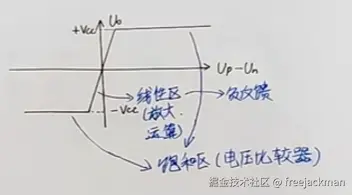 +Vcc
Uo
Up-Un
线性区
(放大、
运算)
负反馈
-Vcc
饱和区(电压比较器)
掘金技术社区 @ freejackman